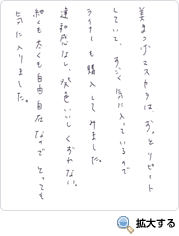 美まつげマスカラは、ずっとリピート
していて、すごく気に入っているので
ライナーも購入してみました。
違和感なし、発色いいし、くずれない。
細くも太くも自由自在なので とっても
気に入りました。
拡大する